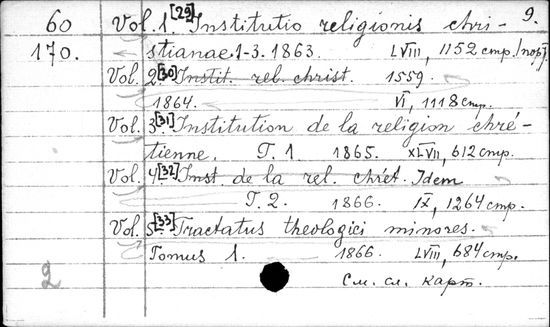 60 Vol. 1.[29] Institutio religionis chri- 9.
170. stianae. 1-3. 1863. LVIII, 1152 стр.
Vol. 2[30] Instit. rel. christ. 1559.
1864. VI, 1118 стр.
Vol. 3[31] Institution de la religion chré-
tienne. T. 1 1865. XLVII, 612 стр.
Vol. 4[32] Inst. de la rel. chrét. Idem
T. 2. 1866. IX, 1264 стр.
Vol. 5[33] Tractatus theologici minores.
Tomus 1. 1866. LVIII, 684 стр.
2 См. сл. карт.